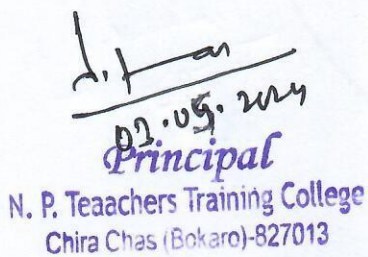 03.05.2024
Principal
N. P. Teaachers Training College
Chira Chas (Bokaro)-827013